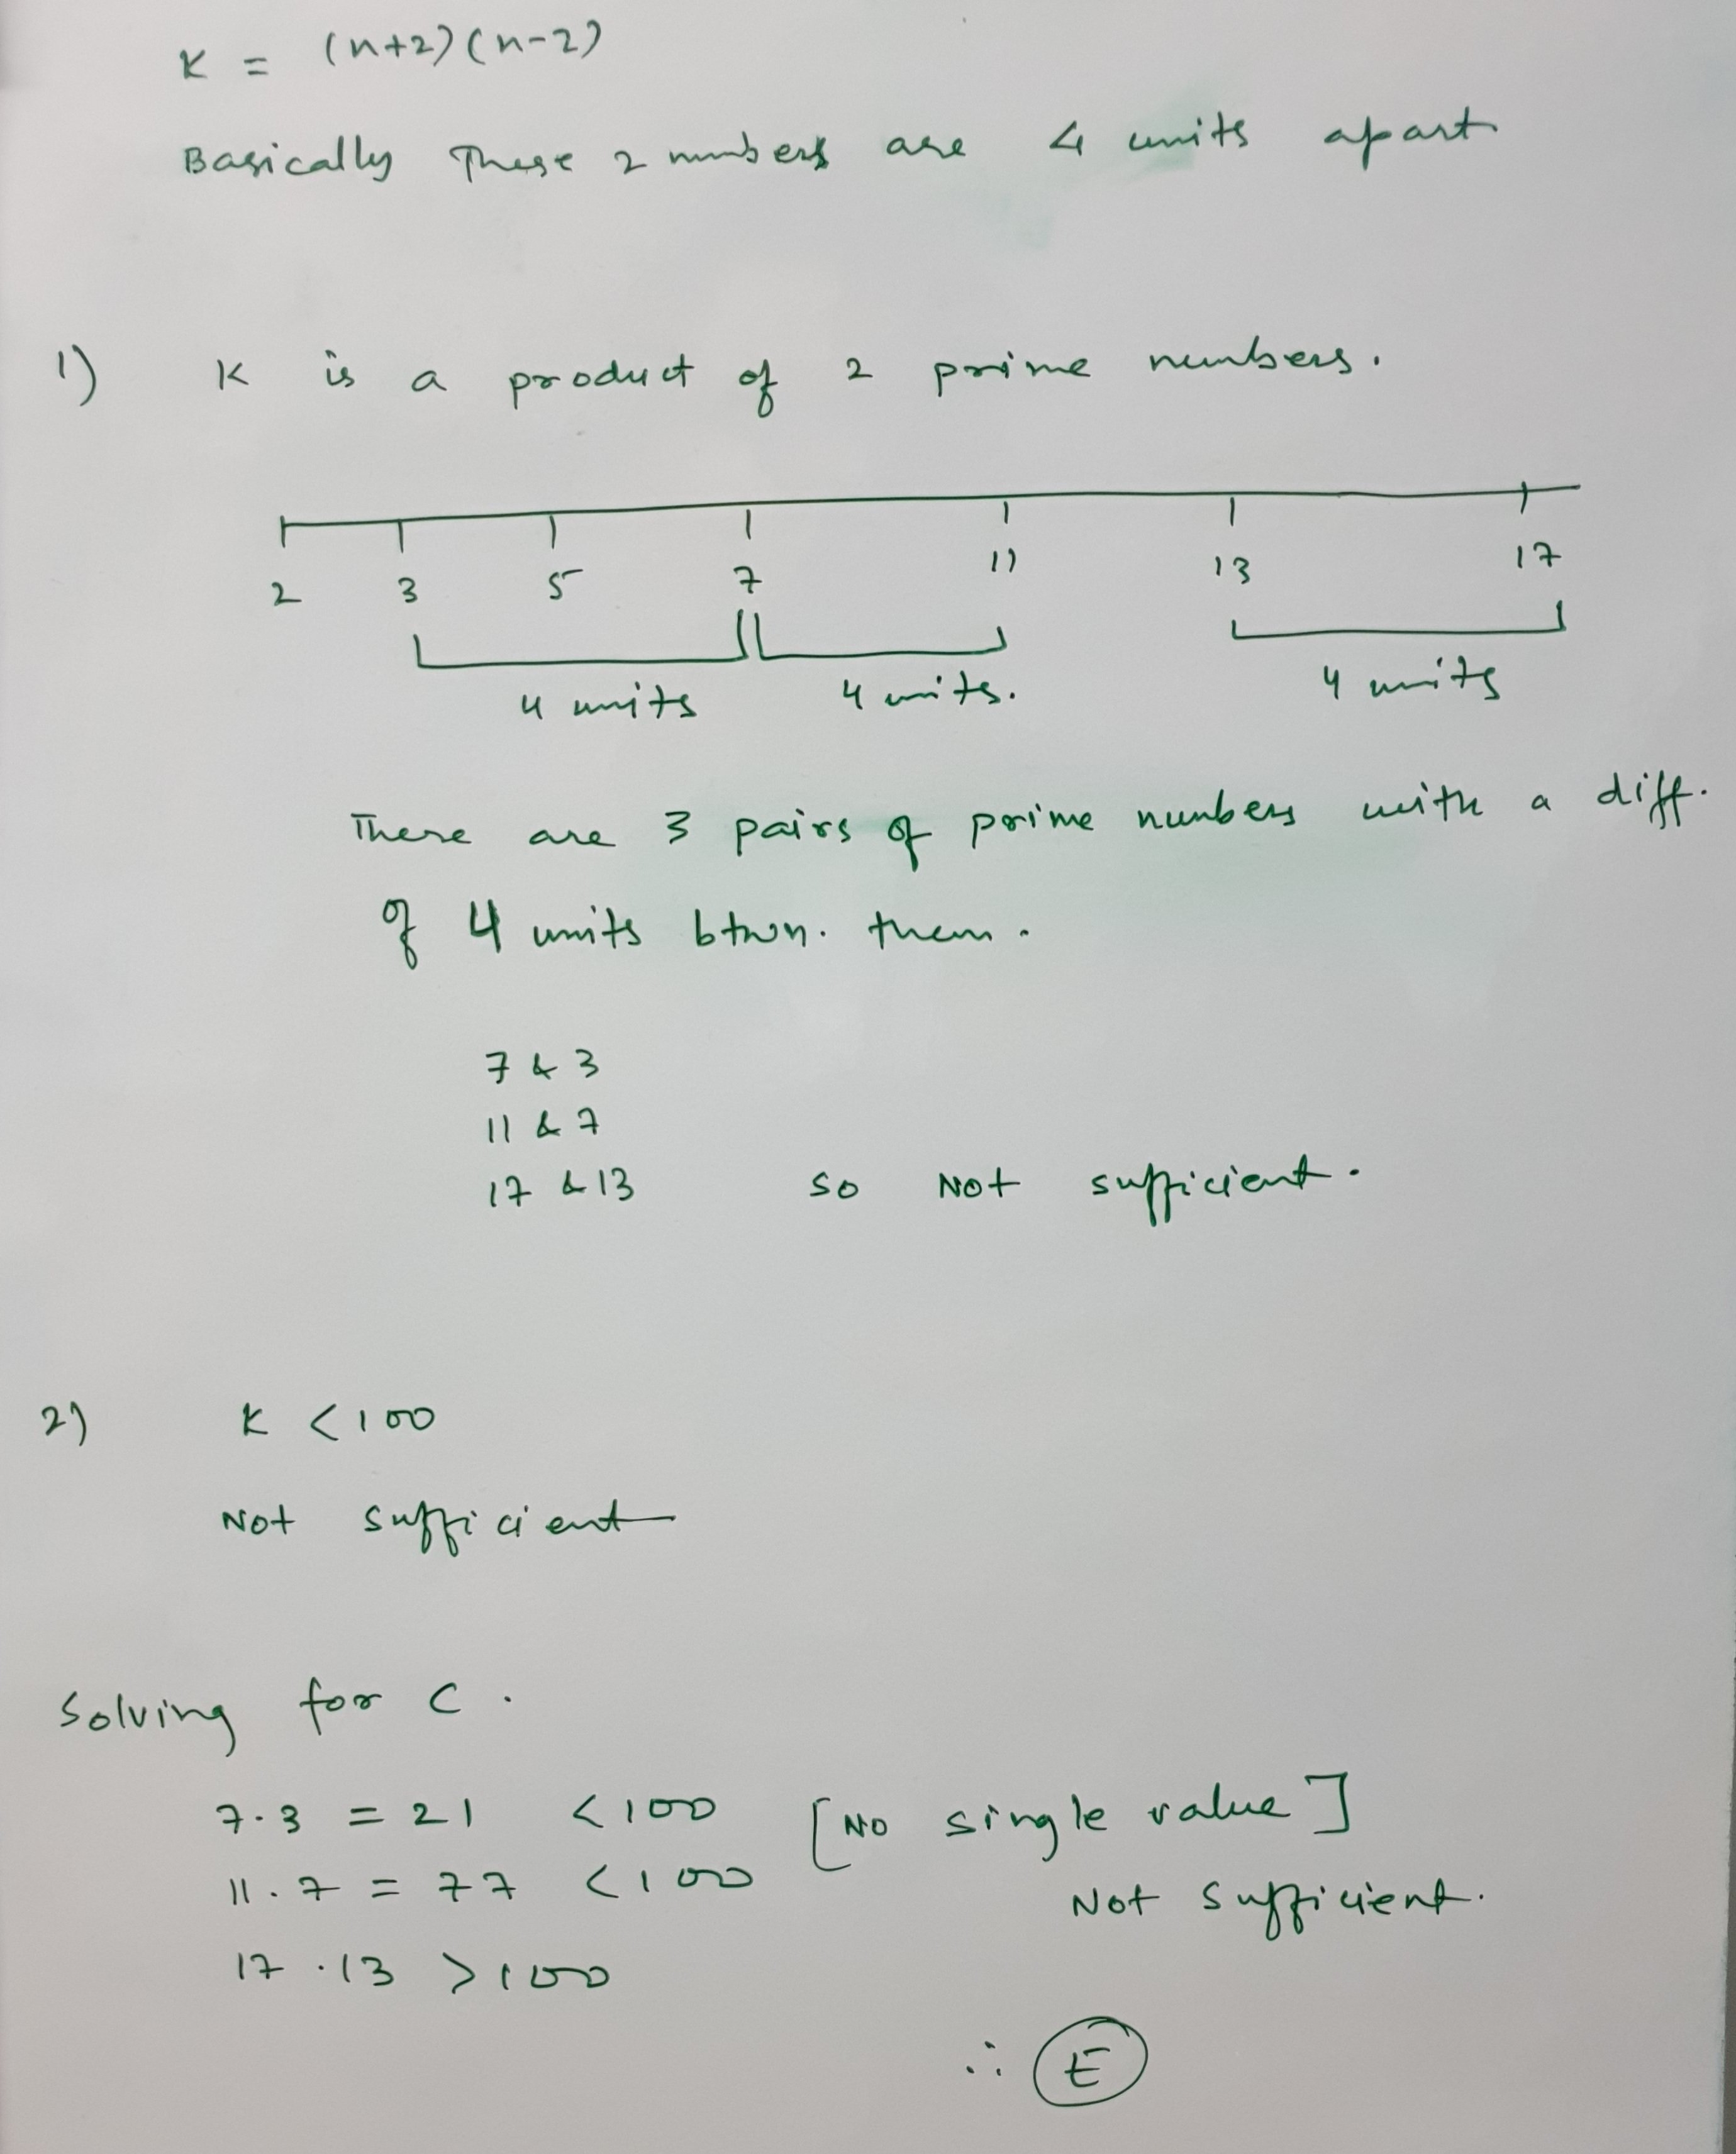 K = (n+2)(n-2)
Basically These 2 numbers are 4 units apart
1) K is a product of 2 prime numbers.
2 3 5 7 11 13 17
4 units 4 units. 4 units
There are 3 pairs of prime numbers with a diff.
of 4 units btwn. them.
7 & 3
11 & 7
17 & 13 so Not sufficient.
2) K < 100
Not sufficient
Solving for C.
7.3 = 21 < 100 [No single value]
11.7 = 77 < 100 Not sufficient.
17.13 > 100
∴ E